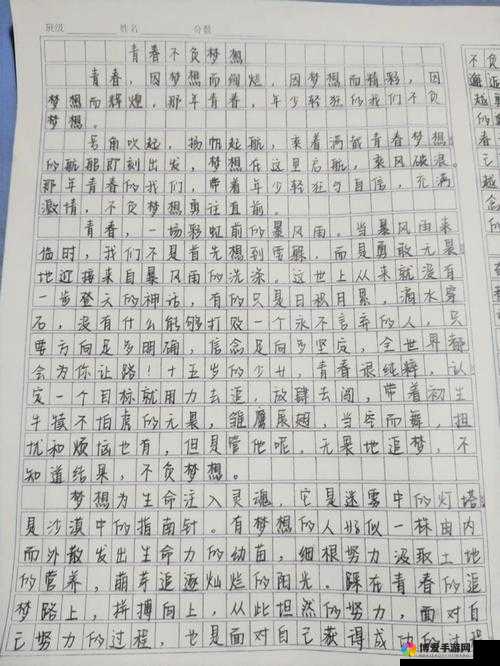 班级 姓名 分数
青春不负梦想
青春，因梦想而绚烂，因梦想而精彩，因
梦想而辉煌，那年青春，年少轻狂的我们不负
梦想。
号角吹起，扬帆起航，乘着满载青春梦想
的航船即刻出发，梦想在这里启航，乘风破浪。
那年青春的我们，带着年少轻狂与自信，充满
激情，不负梦想勇往直前。
青春，一场彩虹前的暴风雨。当暴风雨来
临时，我们不是首先想到雷躲，而是勇敢无畏
地迎接来自暴风雨的洗涤。这世上从来就没有
一步登天的神话，有的只是日积月累，滴水穿
石，没有什么能够打败一个永不言弃的人，只
要方向足多明确，信念足向多坚定，全世界都
会为你让路！十五岁的少女，青春很纯粹，认
定一个目标就用力去追，放肆去闯，带着初生
牛犊不怕虎的无畏，雏鹰展翅，当空而舞，担
忧和烦恼也有，但是管他呢，无畏地追梦，不
知道结果，不负梦想。
梦想为生命注入灵魂，它是迷雾中的灯塔
是沙漠中的指南针。有梦想的人好似一株由内
而外散发出生命力的幼苗，细根努力汲取土地
的营养，萌芽追逐灿烂的阳光。踩在青春的追
梦路上，拼搏向上，从此坦然的努力，面对自
己努力的过程，也是面对自己获得成功的过程
不负
邂逅
越
春
元
越
念
博爱手游网